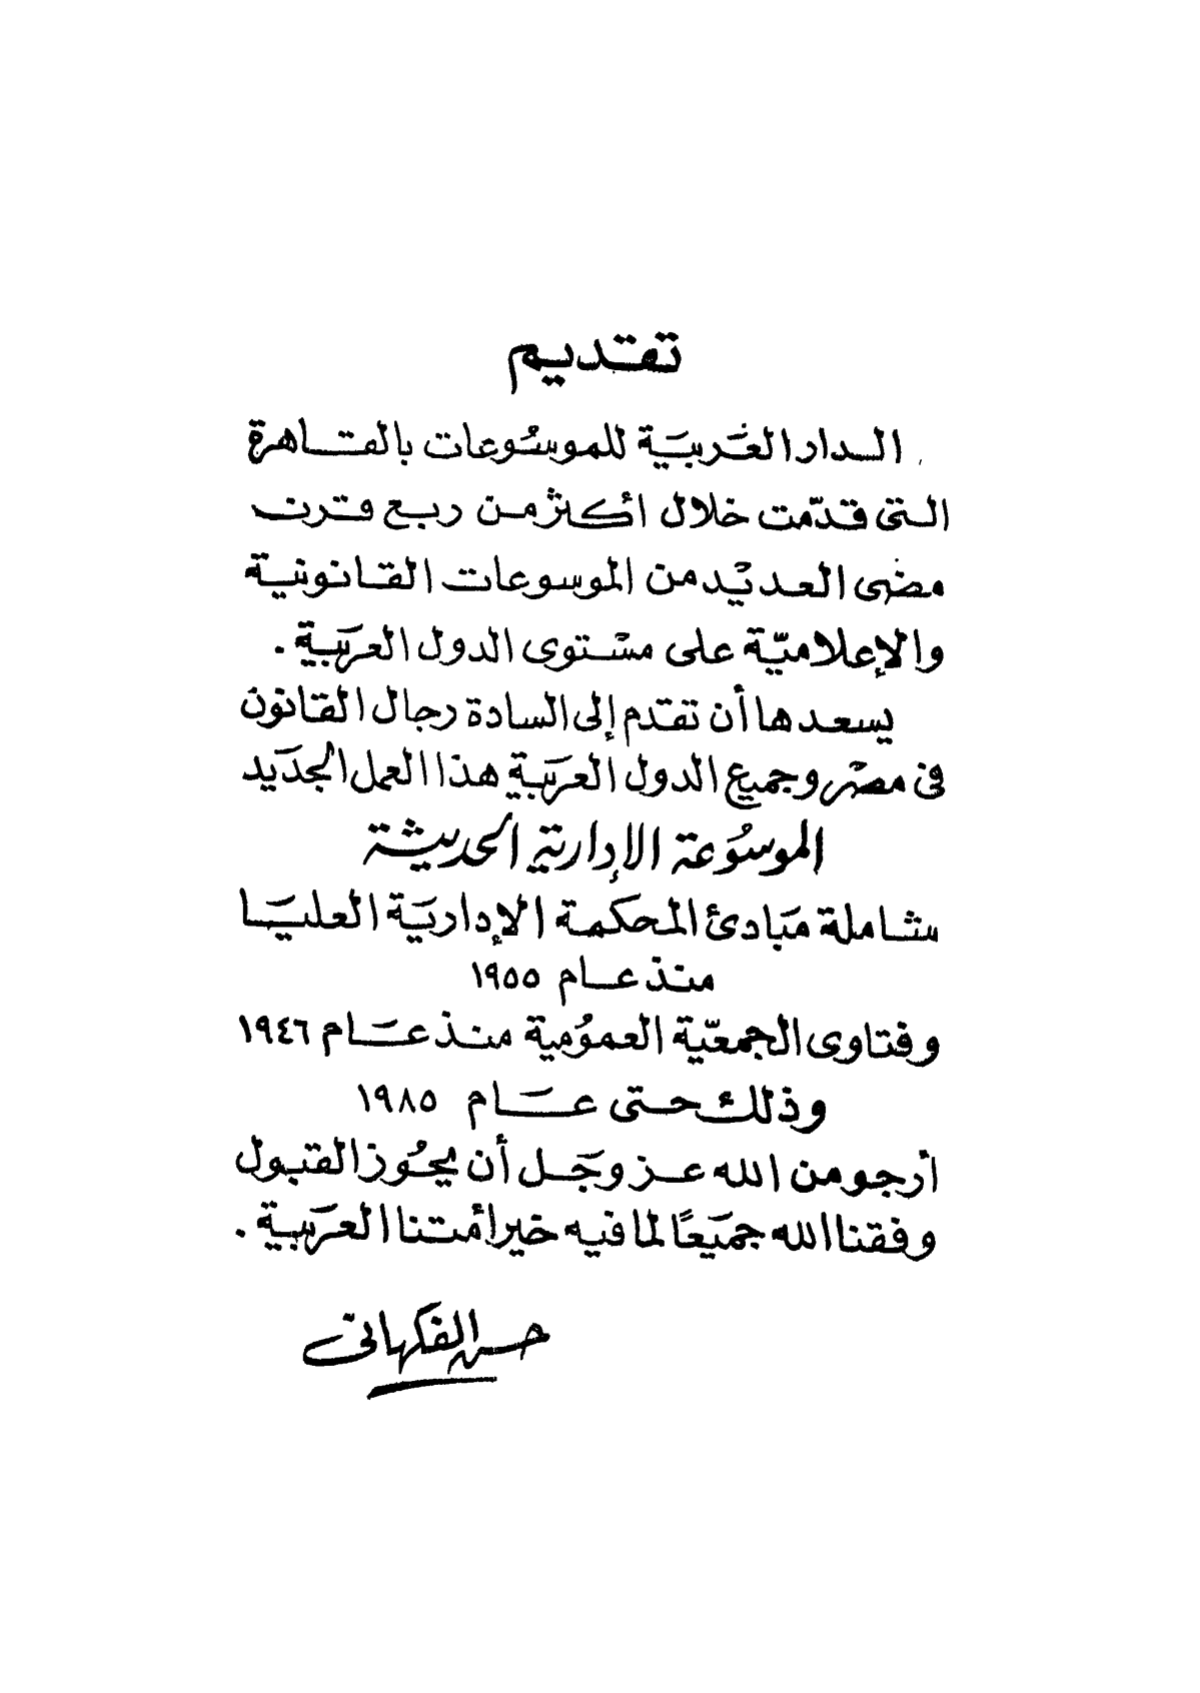 تقديم
الدار العربية للموسوعات بالقاهرة
التى قدّمت خلال أكثر من ربع قرن
مضى العديد من الموسوعات القانونية
والإعلاميّة على مستوى الدول العربية .
يسعدها أن تقدم إلى السادة رجال القانون
فى مصر وجميع الدول العربية هذا العمل الجديد
الموسُوعة الإدارية الحديثة
شاملة مَبادئ المحكمة الإدارية العليا
منذ عام ١٩٥٥
وفتاوى الجمعيّة العمُومية منذ عَام ١٩٤٦
وذلك حتى عَام ١٩٨٥
أرجو من الله عز وجَل أن يحُوز القبول
وفقنا الله جميَعًا لما فيه خير أمتنا العربية .
حسن الفكهانى